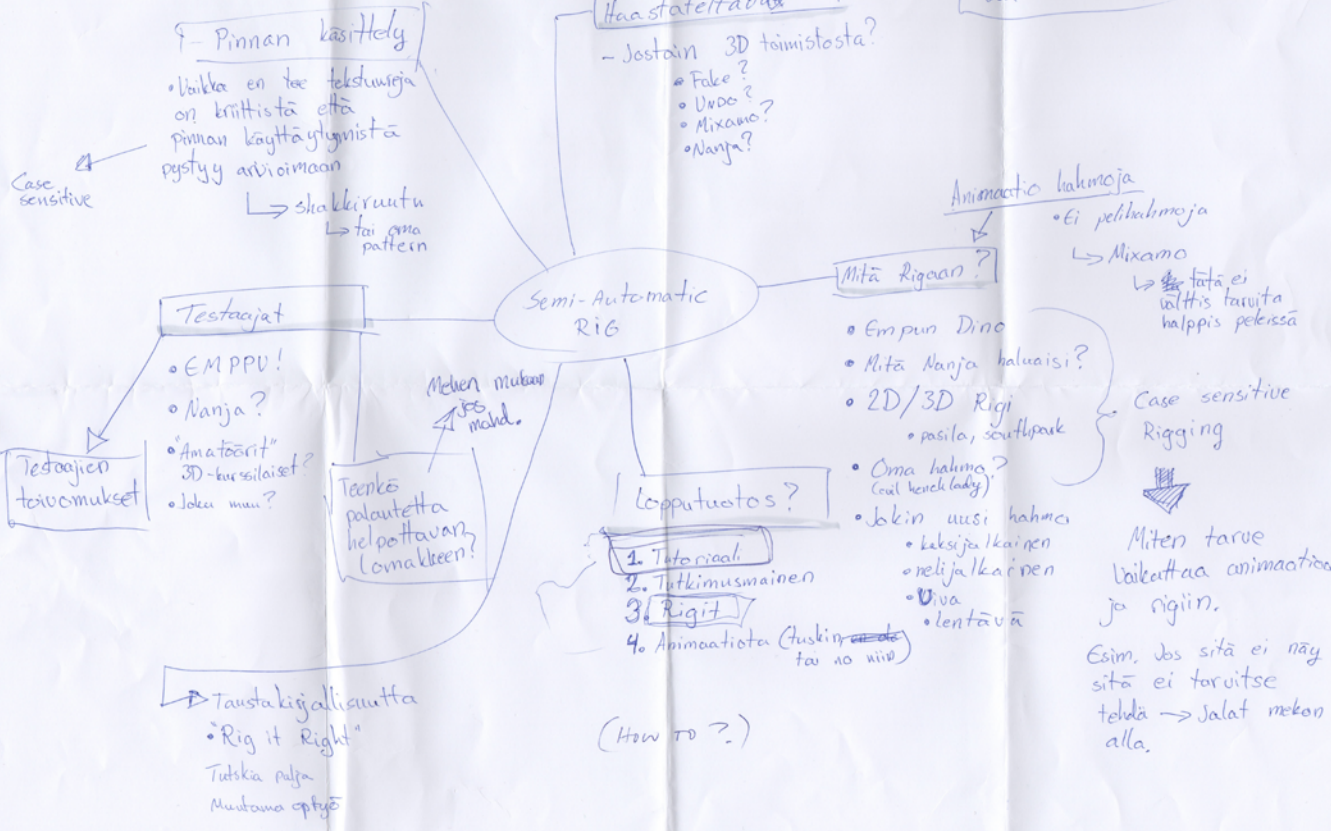 - Pinnan käsittely
• Vaikka en tee tekstuureja
on kriittistä että
pinnan käyttäytymistä
pystyy arvioimaan
Case
sensitive
↳ shakkiruutu
↳ tai oma
pattern
Haastateltavat
- Jostain 3D toimistosta?
• Fake?
• UNDO?
• Mixamo?
• Nanja?
Semi-Automatic
RIG
Animaatio hahmoja
• Ei pelihahmoja
↳ Mixamo
↳ tätä ei
välttis tarvita
halppis peleissä
Mitä Rigaan?
• Empun Dino
• Mitä Nanja haluaisi?
• 2D/3D Rigi
• pasila, southpark
• Oma hahmo?
(evil hench lady)
• Jokin uusi hahmo
• kaksijalkainen
• nelijalkainen
• Viva
• lentävä
Case sensitive
Rigging
Miten tarve
vaikuttaa animaatioo
ja rigiin.
Esim. Jos sitä ei näy
sitä ei tarvitse
tehdä → Jalat mekon
alla.
Testaajat
• EMPPU!
• Nanja?
• "Amatöörit"
3D-kurssilaiset?
• Joku muu?
Testaajien
toivomukset
Mehen mukaan
jos
mahd.
Teenkö
palautetta
helpottavan
lomakkeen?
Lopputuotos?
1. Tutoriaali
2. Tutkimusmainen
3. Rigit
4. Animaatiota (tuskin,
tai no niin)
(HOW TO?)
Taustakirjallisuutta
• "Rig it Right"
Tutskia palja
Muutama optyö